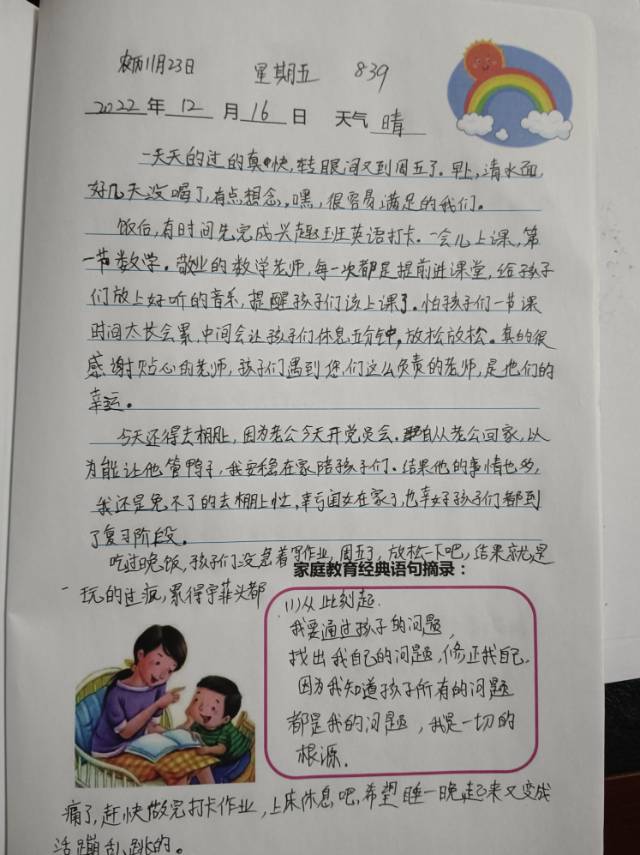 农历11月23日 星期五 839
2022年12月16日 天气晴
一天天的过的真快,转眼间又到周五了。早上,清水面,
好几天没喝了,有点想念,嘿,很容易满足的我们。
饭后,有时间先完成兴趣班英语打卡.一会儿上课,第
一节数学。敬业的数学老师,每一次都是提前进课堂,给孩子
们放上好听的音乐,提醒孩子们该上课了。怕孩子们一节课
时间太长会累,中间会让孩子们休息五分钟,放松放松。真的很
感谢贴心的老师,孩子们遇到您们这么负责的老师,是他们的
幸运。
今天还得去棚上,因为老公今天开党员会.自从老公回家,以
为能让他管鸭子,我安稳在家陪孩子们。结果他的事情也多,
我还是免不了的去棚上忙,幸亏闺女在家了,也幸好孩子们都到
了复习阶段。
吃过晚饭,孩子们没急着写作业,周五了,放松一下吧,结果就是
玩的过疯,累得宇菲头都
家庭教育经典语句摘录:
(1)从此刻起
我要通过孩子的问题,
找出我自己的问题,修正我自己.
因为我知道孩子所有的问题
都是我的问题,我是一切的
根源.
痛了,赶快做完打卡作业,上床休息吧,希望睡一晚,起来又变成
活蹦乱跳的。